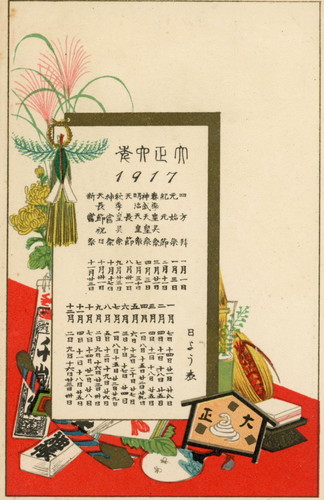 大正六年
1917
四方拝 一月一日
元始祭 一月三日
紀元節 二月十一日
春季皇灵祭 三月廿一日
神武天皇祭 四月三日
明治天皇祭 七月三十日
天長節 八月卅一日
秋季皇灵祭 九月
神嘗祭 十月十七日
天長節祝日 十月卅一日
新嘗祭 十一月廿三日
日よう表
一月 七日 十四日 廿一日 廿八日
二月 四日 十一日 十八日 廿五日
三月 四日 十一日 十八日 廿五日
四月 一日 八日 十五日 廿二日 廿九日
五月 六日 十三日 二十日 廿七日
六月 三日 十日 十七日 廿四日
七月 一日 八日 十五日 廿二日 廿九日
八月 五日 十二日 十九日 廿六日
九月 二日 九日 十六日 廿三日 三十日
十月 七日 十四日 廿一日 廿八日
十一月 四日 十一日 十八日 廿五日
十二月 二日 九日 十六日 廿三日 三十日
大正
千歳